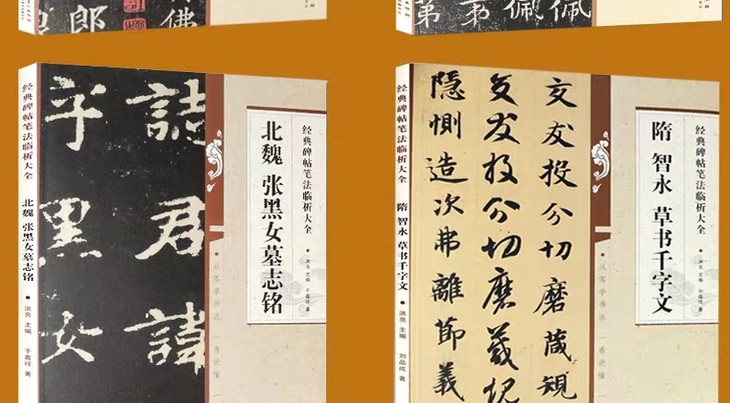 郎
佛
弟
佩
佩
经典碑帖笔法临析大全
北魏 张黑女墓志铭
洪亮 主编 于嘉祥 著
字黑女
誌君諱
经典碑帖笔法临析大全
北魏 张黑女墓志铭
从零学书法 一看就懂
经典碑帖笔法临析大全
隋 智永 草书千字文
洪亮 主编 刘品成 著
交友投分切磨箴規
交友投分切磨箴規
隱惻造次弗離節義
经典碑帖笔法临析大全
隋 智永 草书千字文
从零学书法 一看就懂